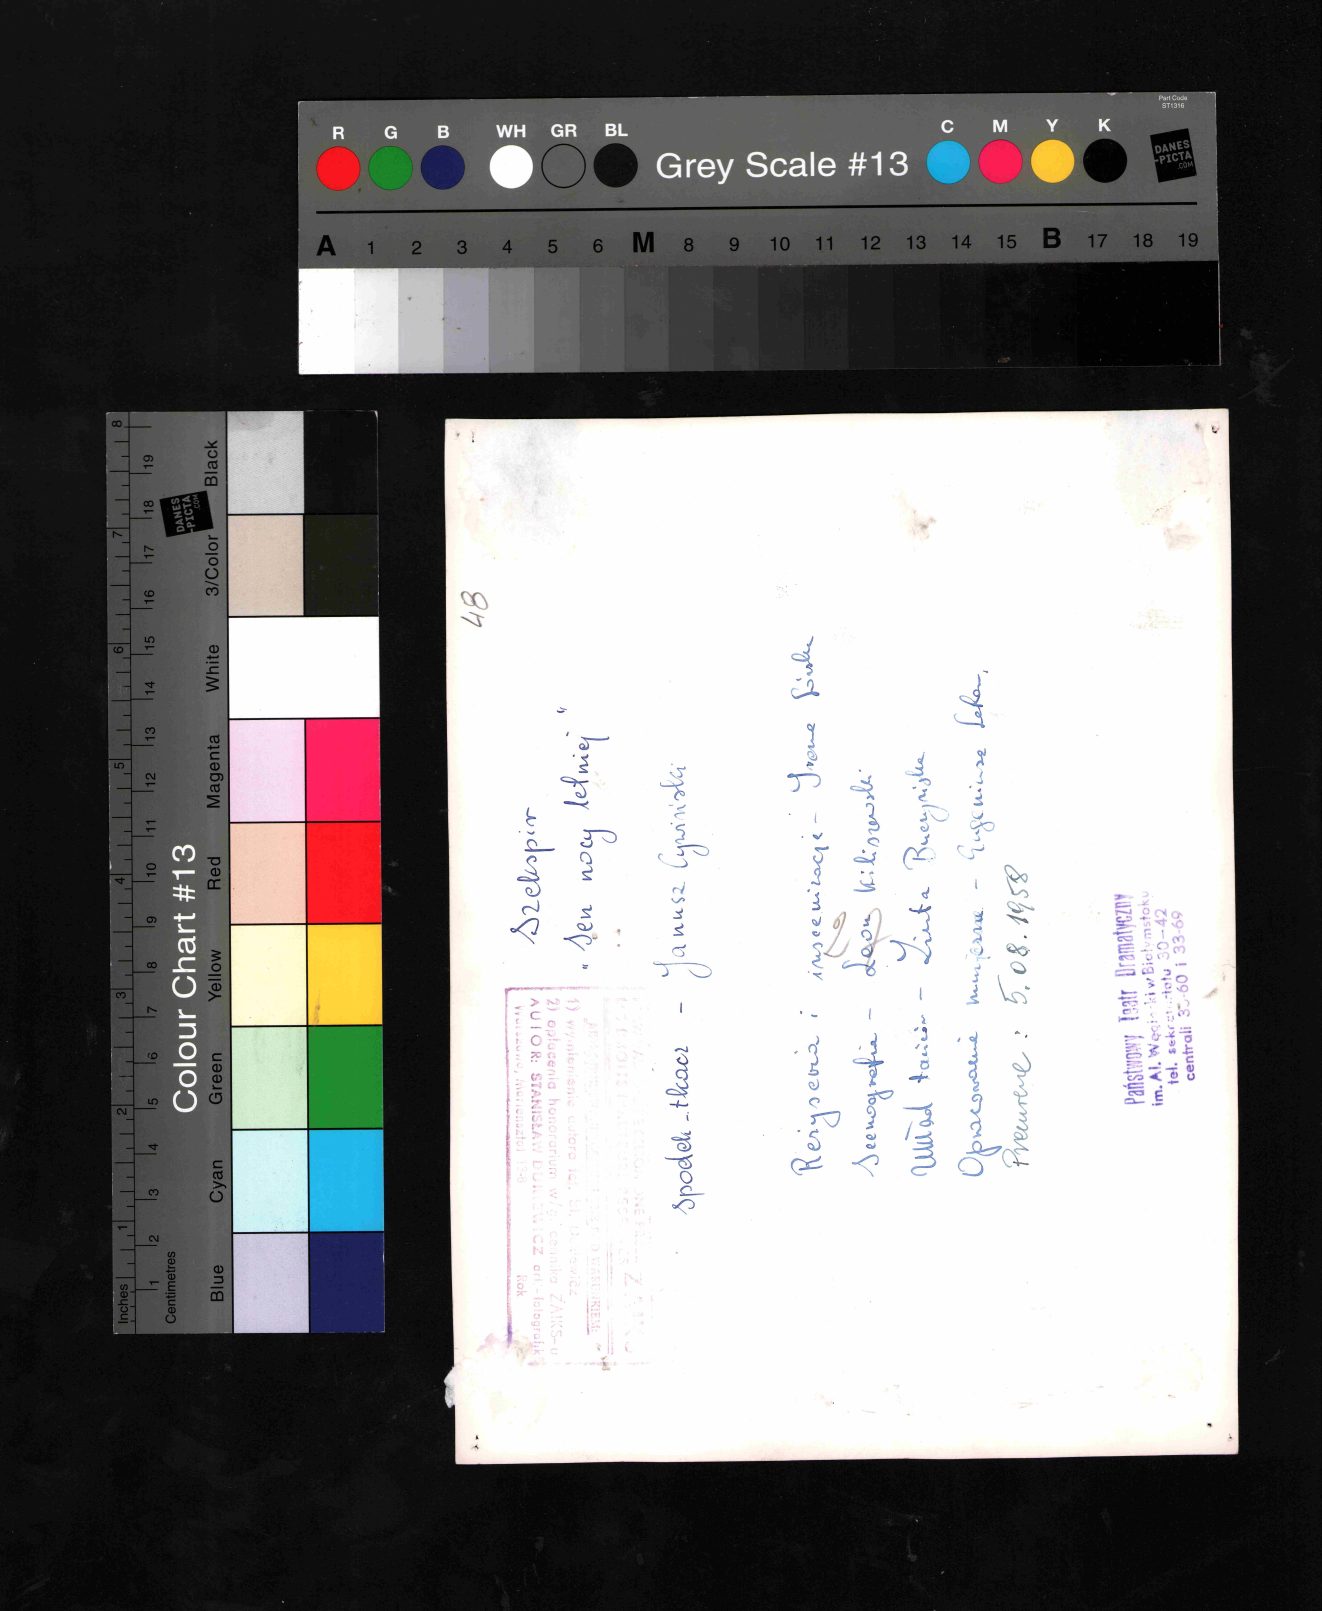 Part Code
ST1316
R G B WH GR BL Grey Scale #13 C M Y K
DANES
-PICTA
.COM
A 1 2 3 4 5 6 M 8 9 10 11 12 13 14 15 B 17 18 19
Colour Chart #13
DANES
-PICTA
.COM
Blue Cyan Green Yellow Red Magenta White 3/Color Black
Centimetres 1 2 3 4 5 6 7 8 9 10 11 12 13 14 15 16 17 18 19
Inches 1 2 3 4 5 6 7 8
48
Szekspir
"Sen nocy letniej"
Spodek - tkacz - Janusz Cywiński
Reżyseria i inscenizacja - Irena Górska
Scenografia - Leon Kiliszewski
Układ tańców - Buczyńska
Opracowanie - Eugeniusz
5.08.1958
AUTOR: STANISŁAW
Rok
Państwowy Teatr Dramatyczny
im. Al. Węgierki w Białymstoku
tel. sekretariatu 30-42
centrali 35-60 i 33-69